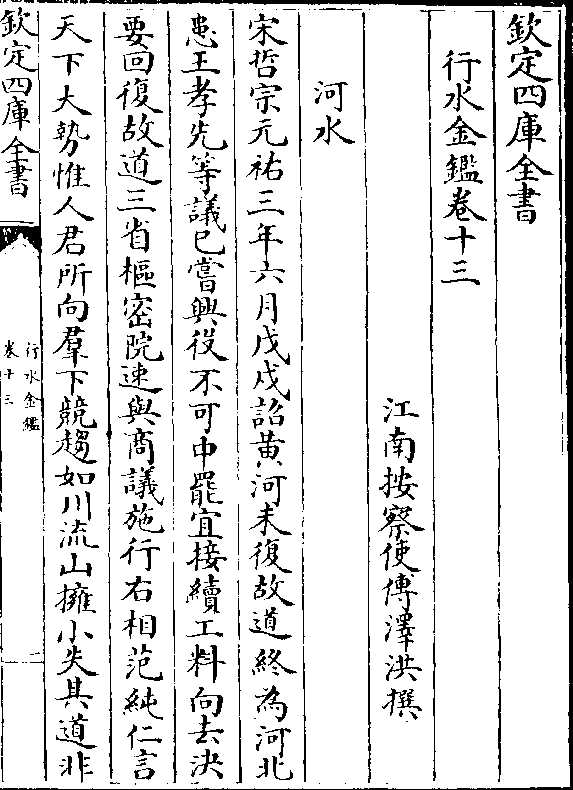 欽定四庫全書
行水金鑑卷十三
江南按察使傅澤洪撰
河水
宋哲宗元祐三年六月戊戌詔黃河未復故道終為河北
患王孝先等議已嘗興役不可中罷宜接續工料向去決
要回復故道三省樞密院速與商議施行右相范純仁言
天下大勢惟人君所向羣下競趨如川流山摧小失其道非
欽定四庫全書
行水金鑑
卷十三
一